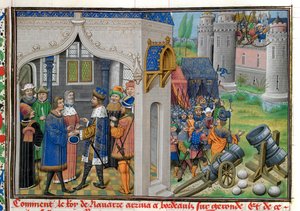 Comment le Roy de Nauarre arriua a bordeaulx sur gironde. Et de ce